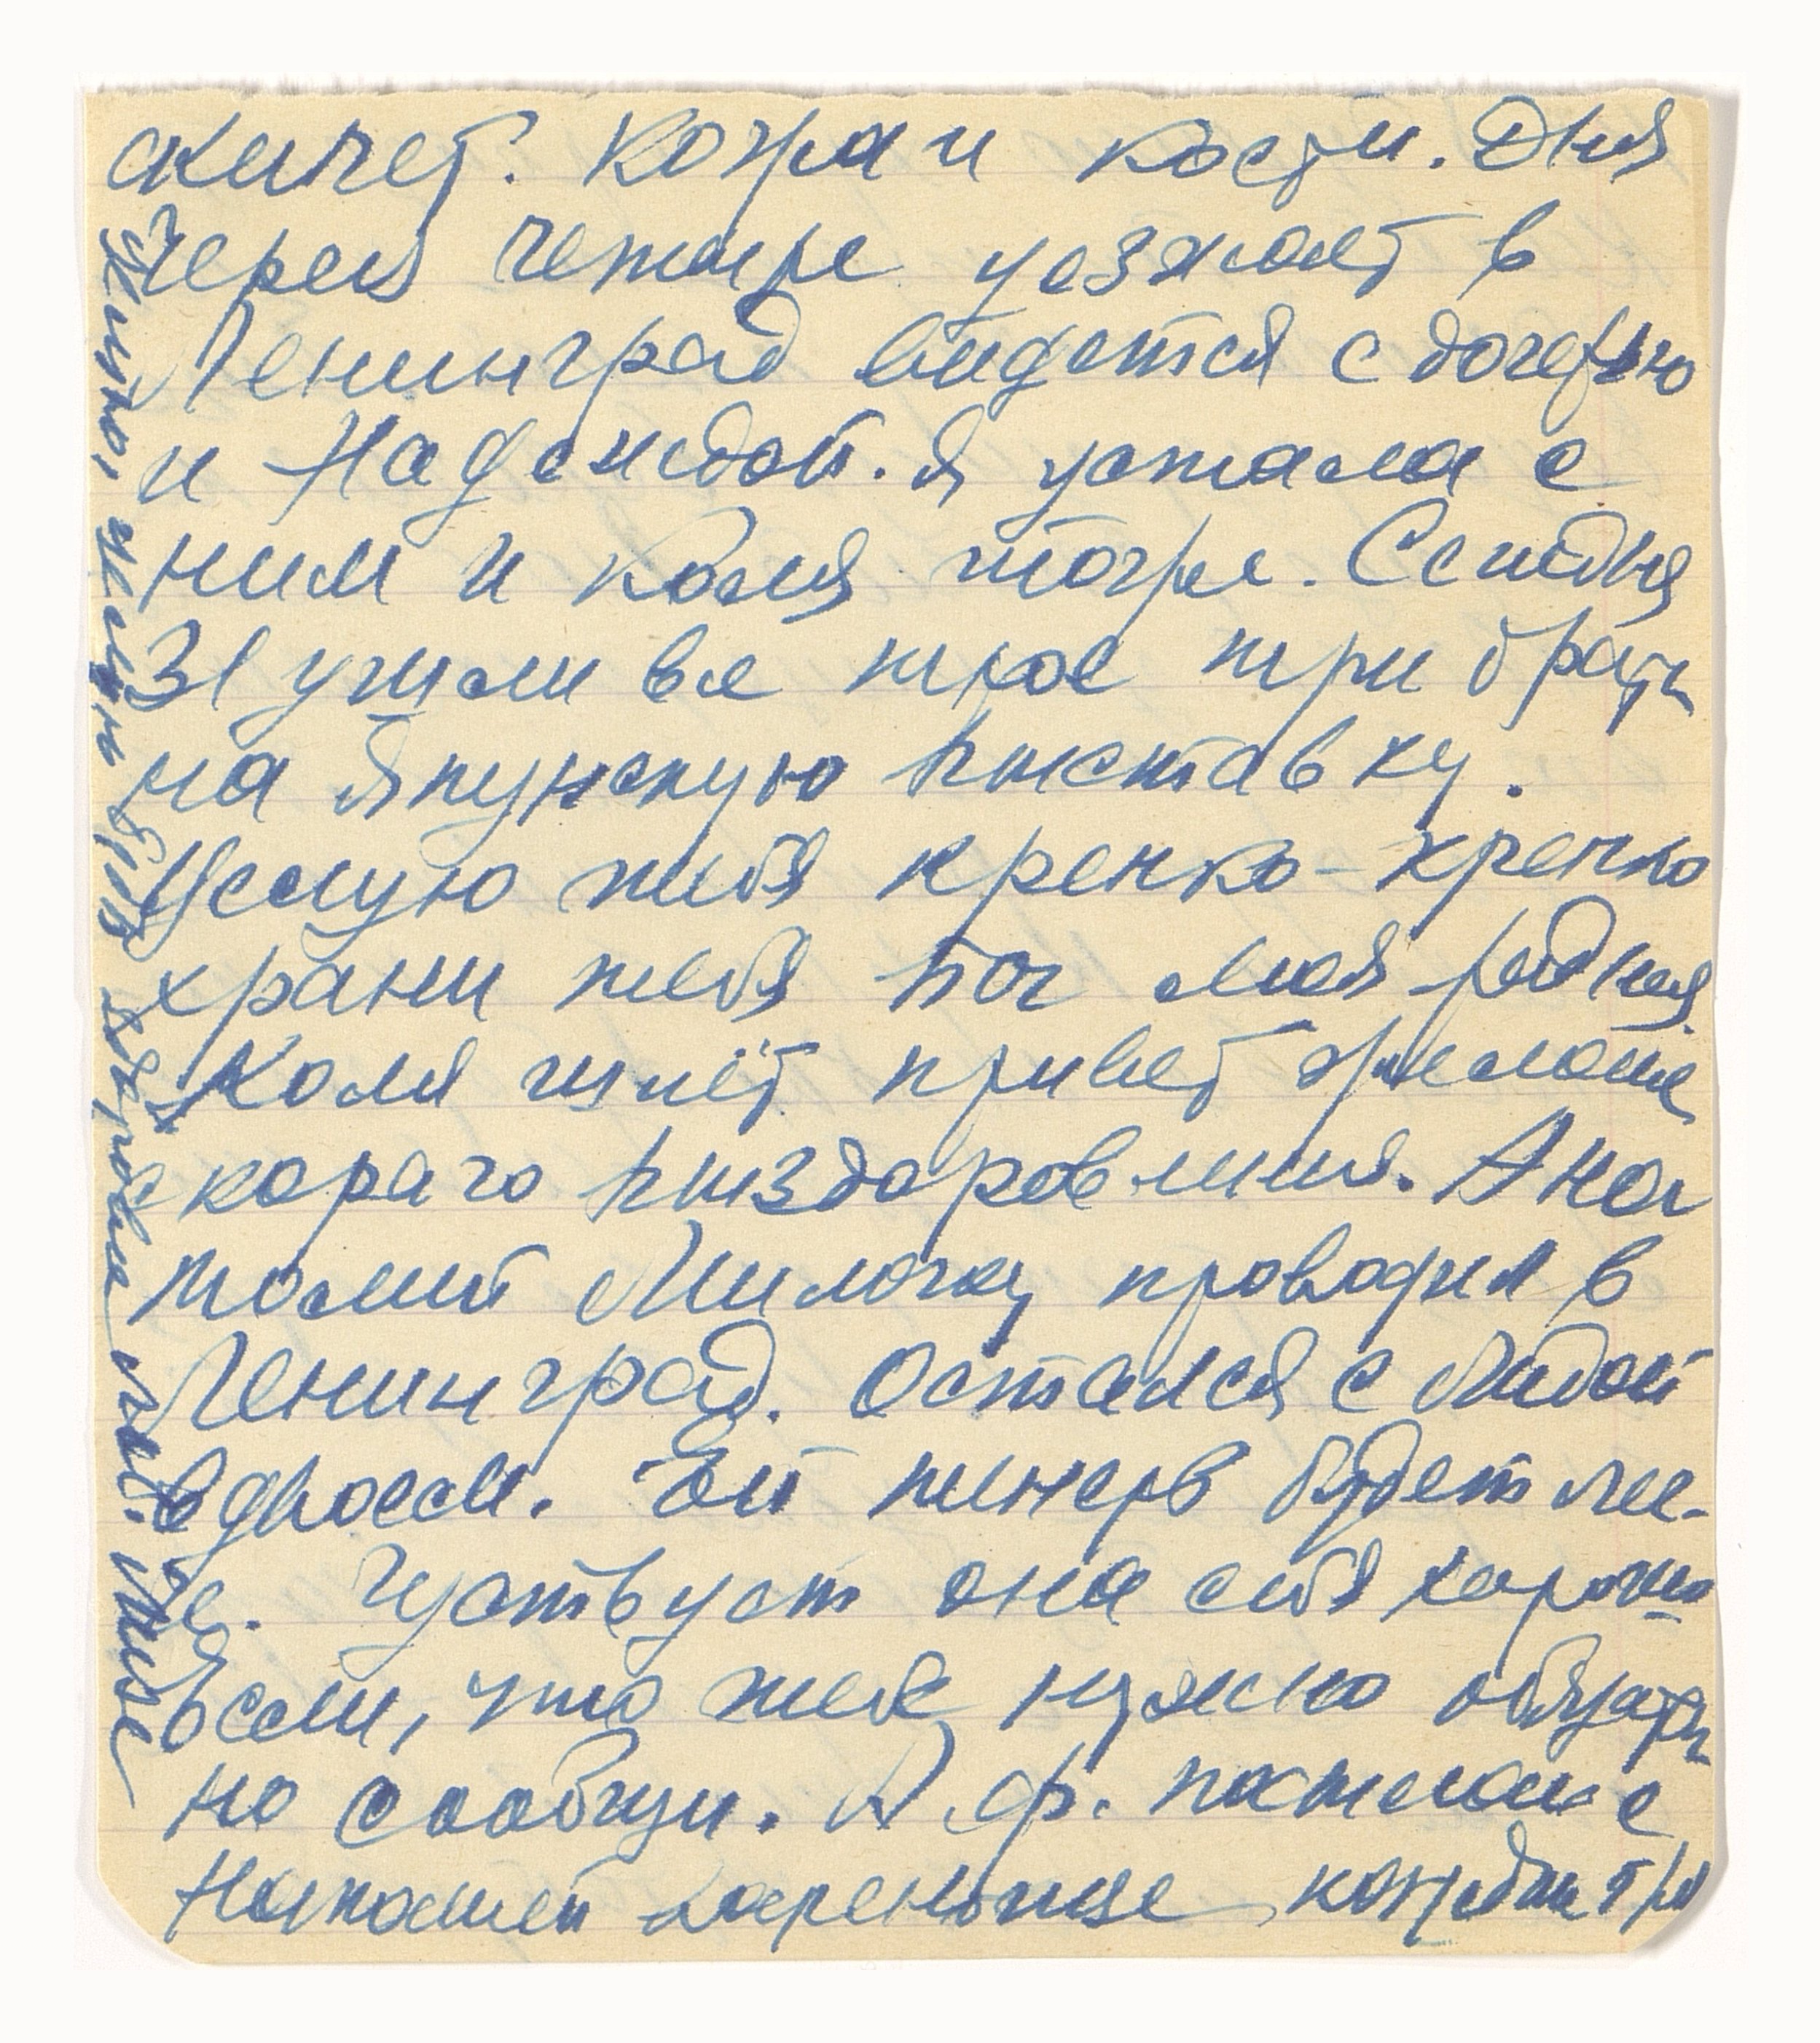 скилет. Кожа и кости. Дня
через четыре уезжает в
Ленинград видется с дочерью
и Надеждой. Я устала с
ним и Коля тоже. Севодня
31 ушли все трое три брата
на Япунскую выставку.
Целую тебя крепко-крепко
храни тебя Бог моя родная.
Коля шлёт привет желание
скораго выздоровления. Ана
толий Милочку проводил в
Ленинград. Остался с Лидой
вдвоем. Ей теперь будет лег-
че. Чуствует она себя хорошо
Если, что тебе нужно обязательно
но сообщи. В ф. постели с
Наташей
целую, целую будь здорова